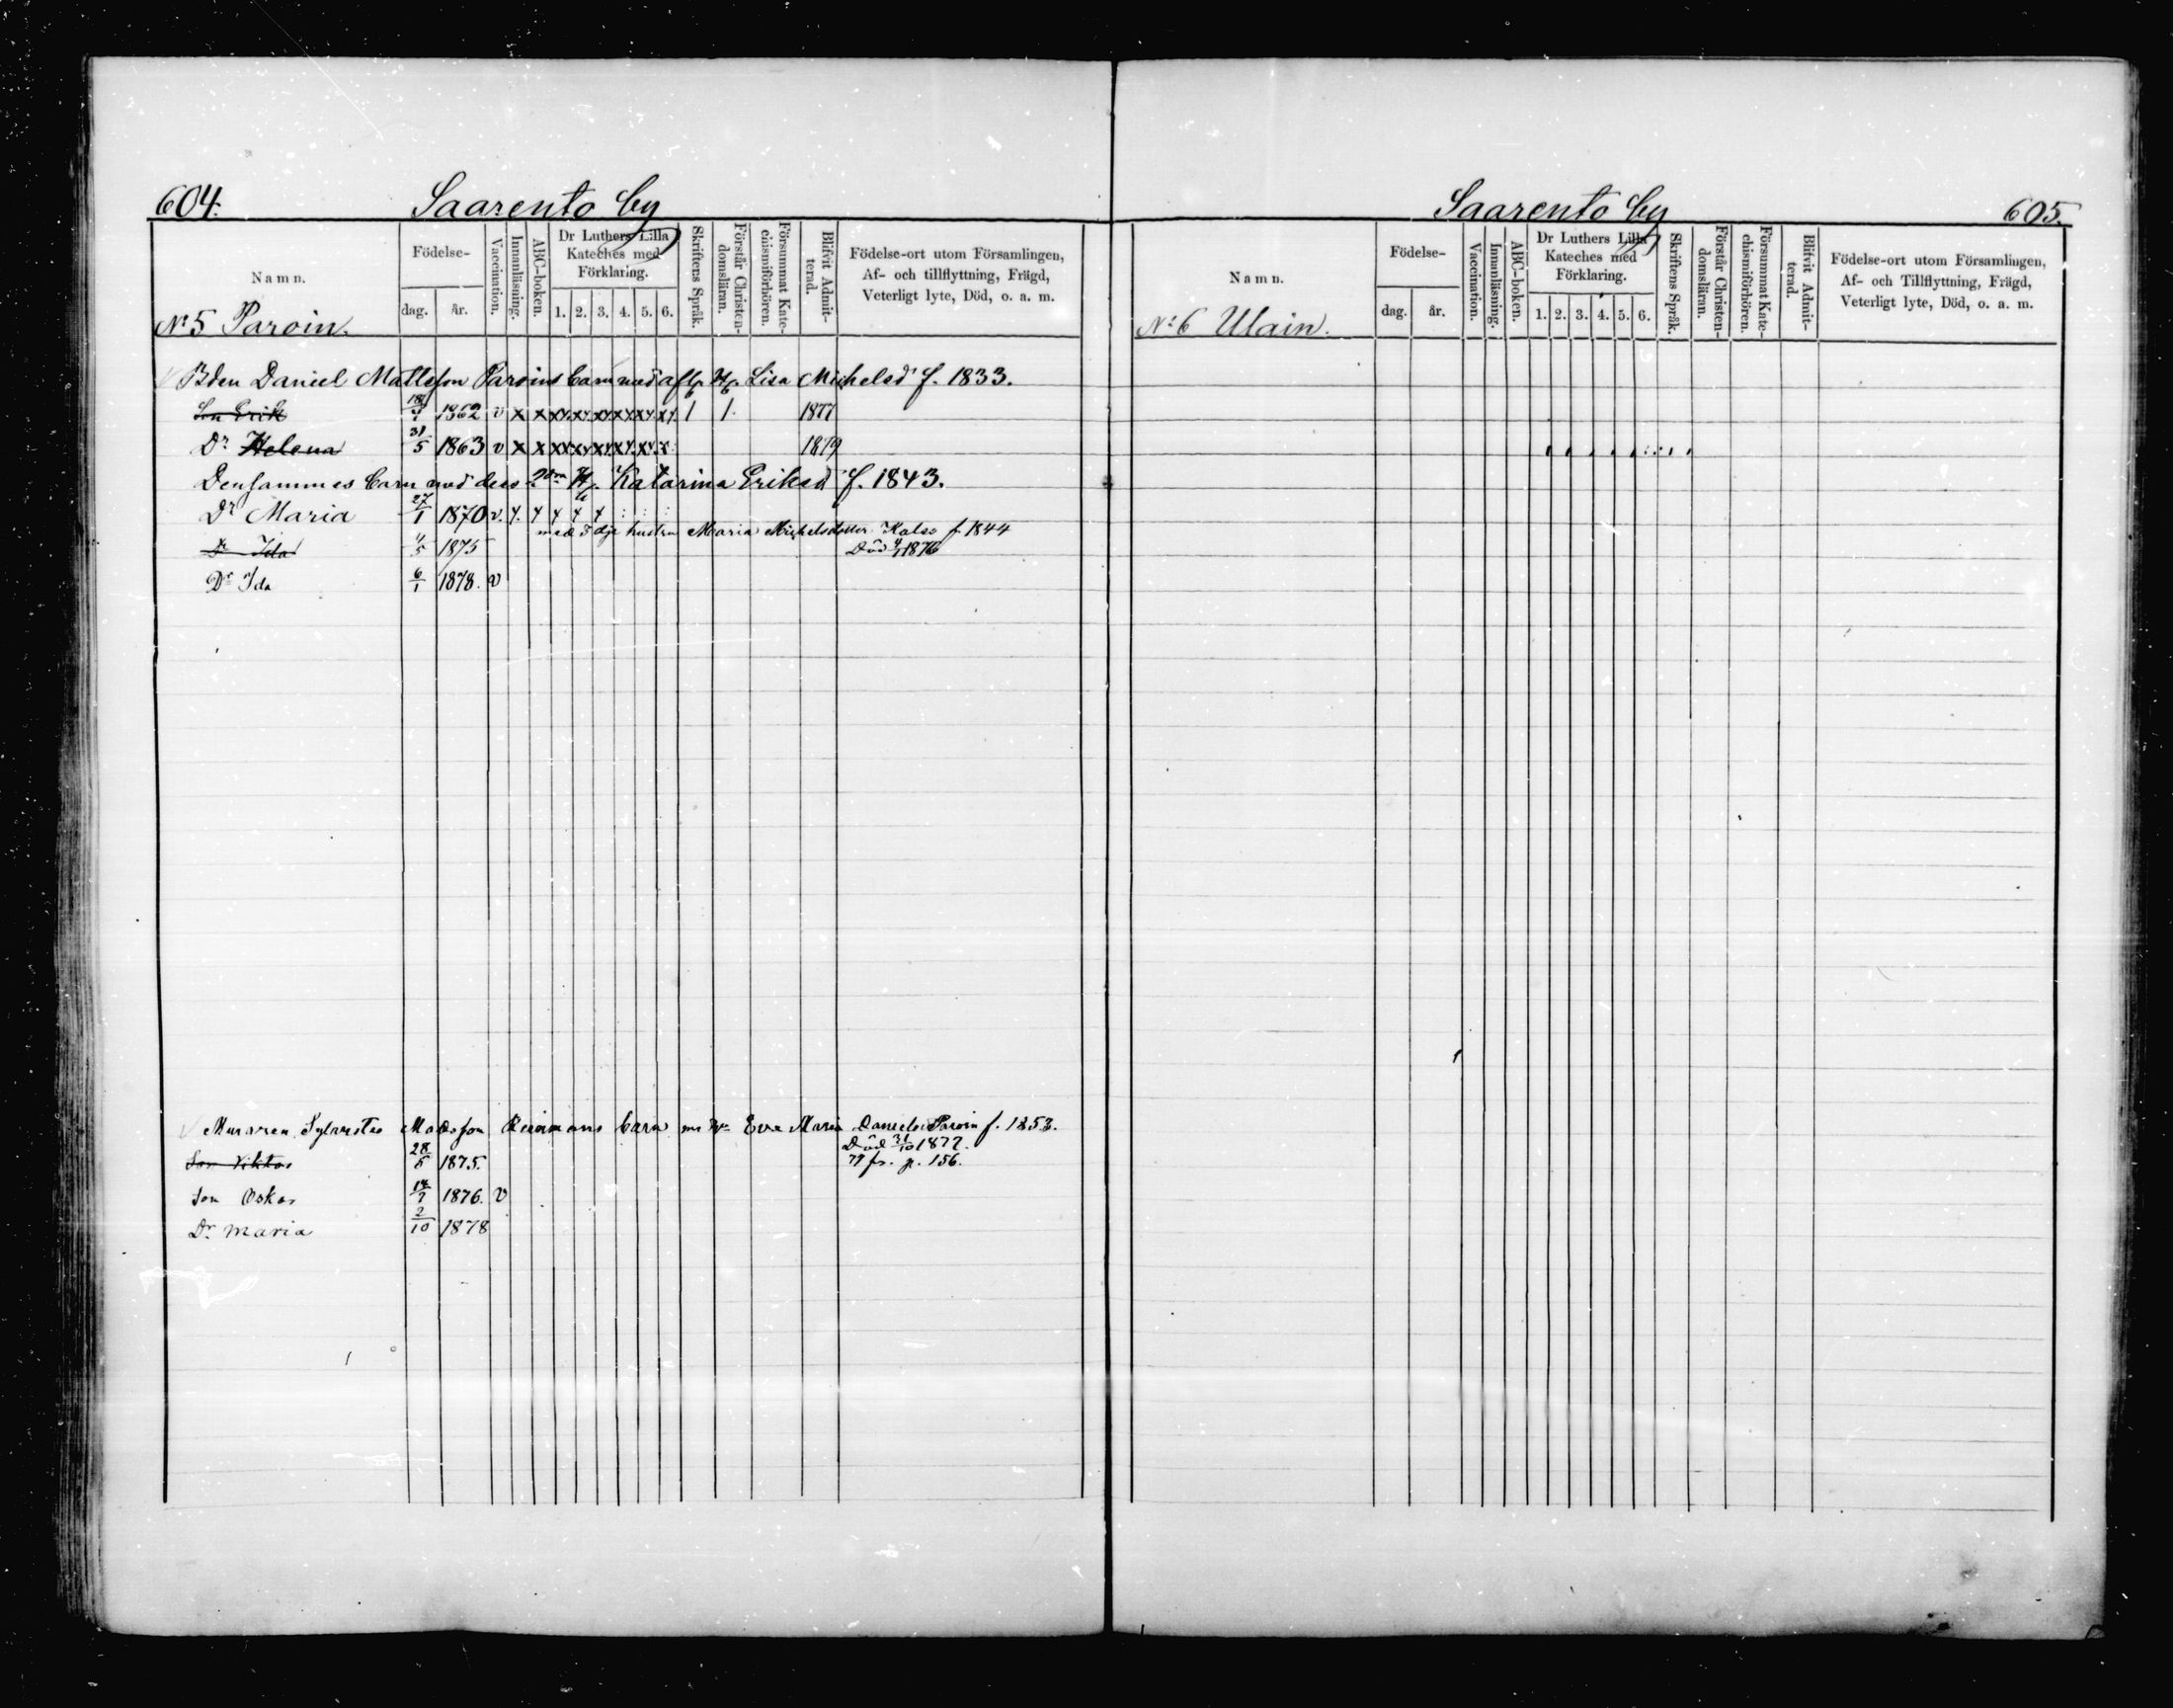 604.
Saarento by
Namn.
Födelse-
dag.
år.
Vaccination.
Innanläsning.
ABC-boken.
Dr Luthers Lilla
Kateches med
Förklaring.
1. 2. 3. 4. 5. 6.
Skriftens Språk.
Förstår Christen-
domsläran.
Försummat Kate-
chismiförhören.
Blifvit Admit-
terad.
Födelse-ort utom Församlingen,
Af- och tillflyttning, Frägd,
Veterligt lyte, Död, o. a. m.
No 5 Paroin.
Bden Daniel Mattsson Paroins barn med afl. H. Lisa Michelsd f. 1833.
Son Erik 1862 v x x x x x x x x 1 1. 1877
Dr Helena 31/5 1863 v x x x x x x x x 1879
Densammes barn med dess 2dra H. Katarina Eriksd f. 1843.
Dr Maria 27/1 1870 v.
med 3dje hustru Maria Michelsdotter f. 1844
Dr Ida 1875 Död 1876
Dr Ida 6/1 1878. v
Muraren Matsson barn Eva Maria Daniels Paroin f. 1853.
Död 31/10 1877.
Son Viktor 28/5 1875. p. 156.
Son Oskar 1876. v
Dr Maria 2/10 1878
Saarento by
605.
Namn.
Födelse-
dag.
år.
Vaccination.
Innanläsning.
ABC-boken.
Dr Luthers Lilla
Kateches med
Förklaring.
1. 2. 3. 4. 5. 6.
Skriftens Språk.
Förstår Christen-
domsläran.
Försummat Kate-
chismiförhören.
Blifvit Admit-
terad.
Födelse-ort utom Församlingen,
Af- och Tillflyttning, Frägd,
Veterligt lyte, Död, o. a. m.
No 6 Ulain.